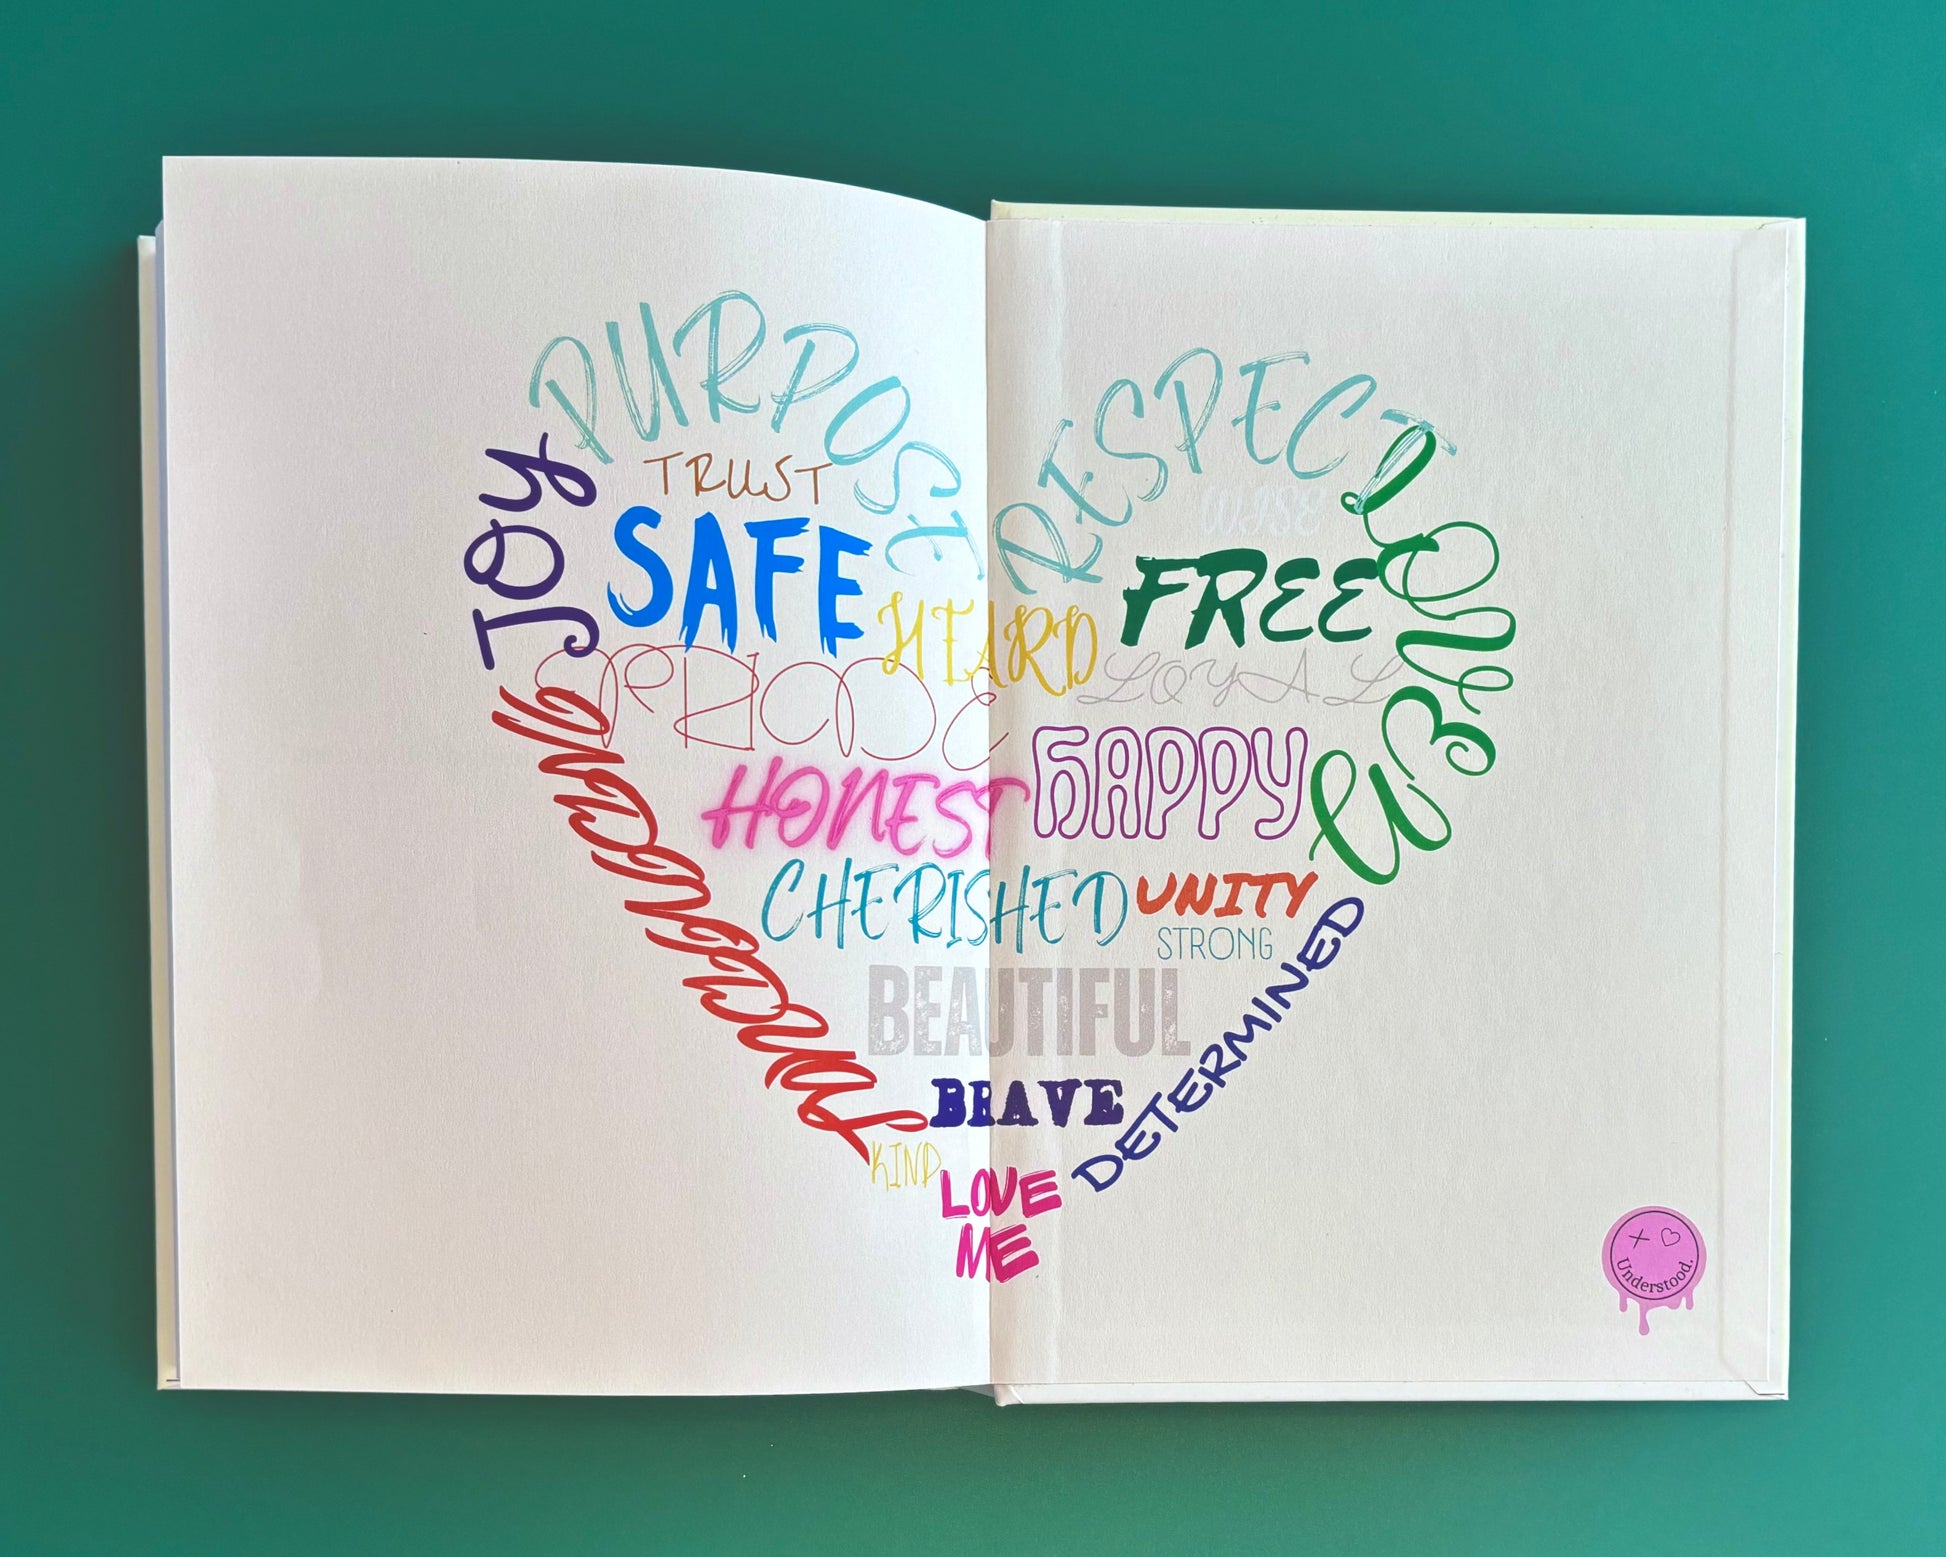 PURPOSE
RESPECT
JOY
TRUST
WISE
SAFE
FREE
LOVED
HEARD
PRIDE
LOYAL
HONEST
HAPPY
CHERISHED
UNITY
STRONG
BEAUTIFUL
DETERMINED
BRAVE
KIND
LOVE
ME
Understood.